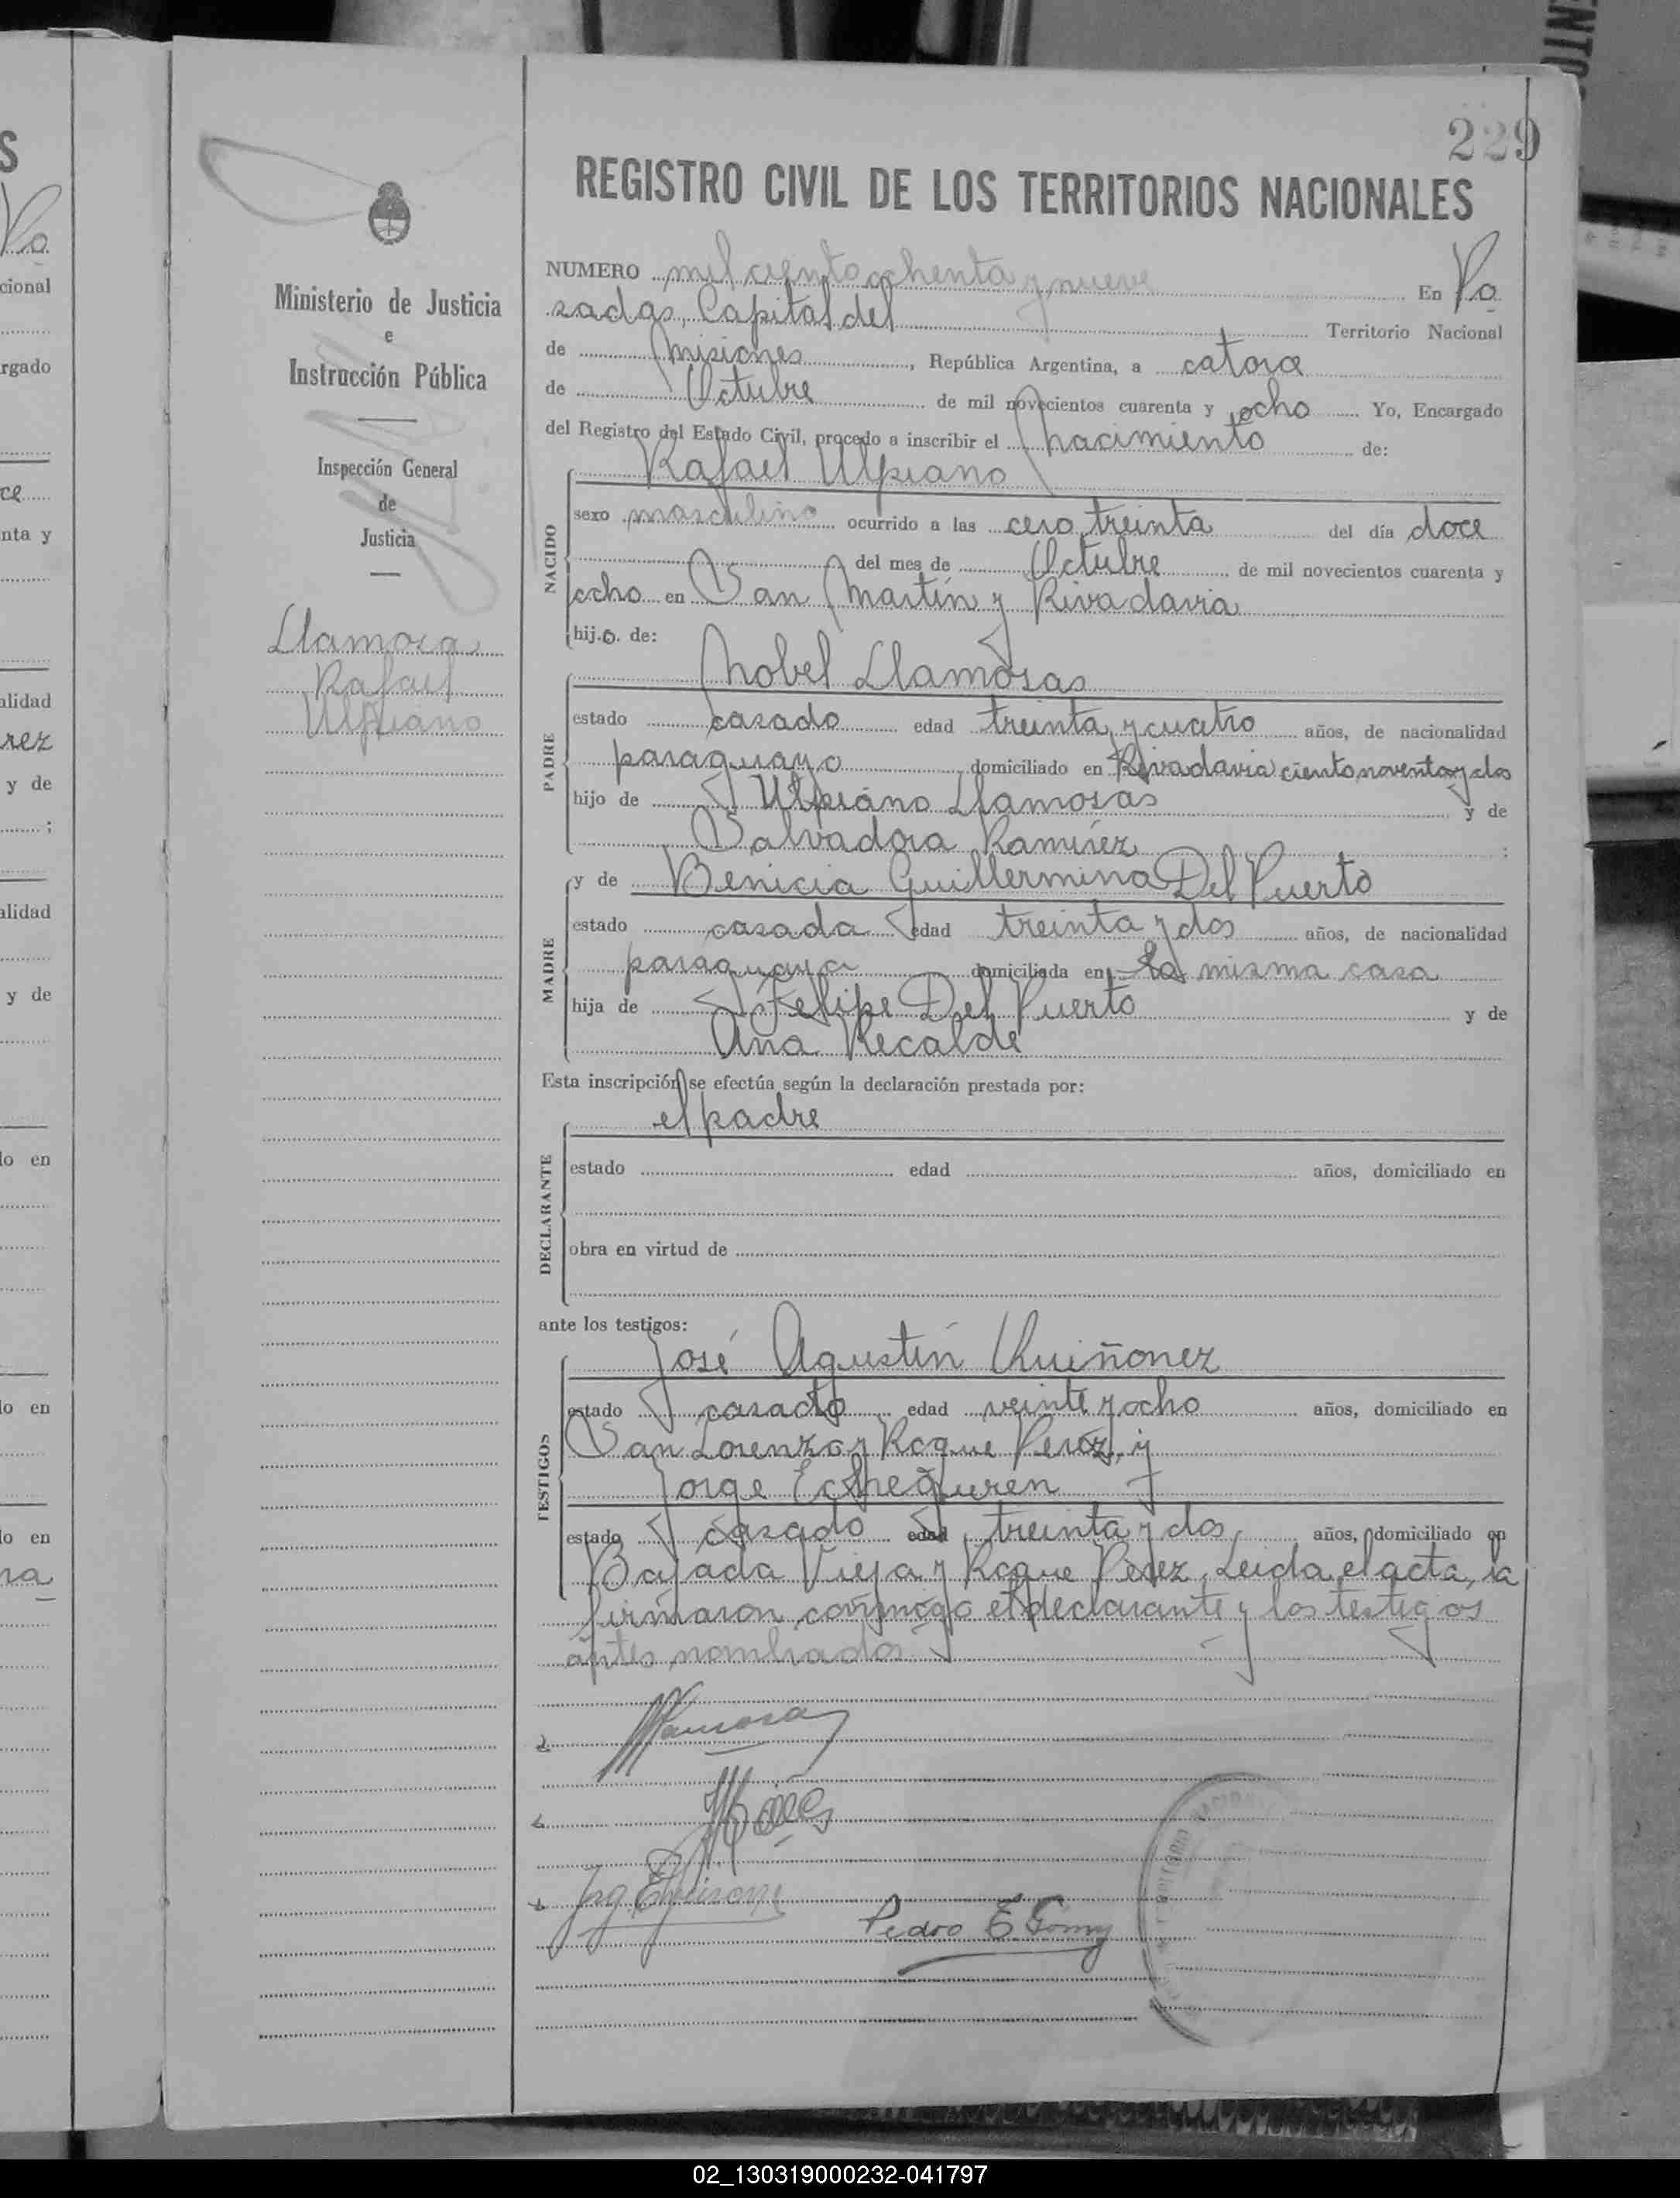 229
REGISTRO CIVIL DE LOS TERRITORIOS NACIONALES
NUMERO mil ciento ochenta y nueve En Po
sadas, Capital del Territorio Nacional
de Misiones, República Argentina, a catorce
de Octubre de mil novecientos cuarenta y ocho Yo, Encargado
del Registro del Estado Civil, procedo a inscribir el nacimiento de:
NACIDO
Rafael Ulpiano
sexo masculino ocurrido a las cero treinta del día doce
del mes de Octubre, de mil novecientos cuarenta y
ocho en San Martín y Rivadavia
hijo. de:
PADRE
Nobel Llamosas
estado casado edad treinta y cuatro años, de nacionalidad
paraguayo domiciliado en Rivadavia ciento noventa y dos
hijo de Ulpiano Llamosas y de
Salvadora Ramírez ;
MADRE
y de Benicia Guillermina Del Puerto
estado casada edad treinta y dos años, de nacionalidad
paraguaya domiciliada en la misma casa
hija de Felipe Del Puerto y de
Ana Recalde
Esta inscripción se efectúa según la declaración prestada por:
DECLARANTE
el padre
estado edad años, domiciliado en
obra en virtud de
ante los testigos:
TESTIGOS
José Agustín Quiñonez
estado casado edad veinte y ocho años, domiciliado en
San Lorenzo y Roque Perez, y
Jorge Echeguren
estado casado edad treinta y dos años, domiciliado en
Bajada Vieja y Roque Perez. Leida el acta, la
firmaron conmigo el declarante y los testigos
antes nombrados.
Pedro E. Gomy
Ministerio de Justicia
e
Instrucción Pública
Inspección General
de
Justicia
Llamosa
Rafael
Ulpiano
S
Po
cional
rgado
ce
nta y
alidad
rez
y de
;
alidad
y de
lo en
lo en
lo en
na
02_130319000232-041797